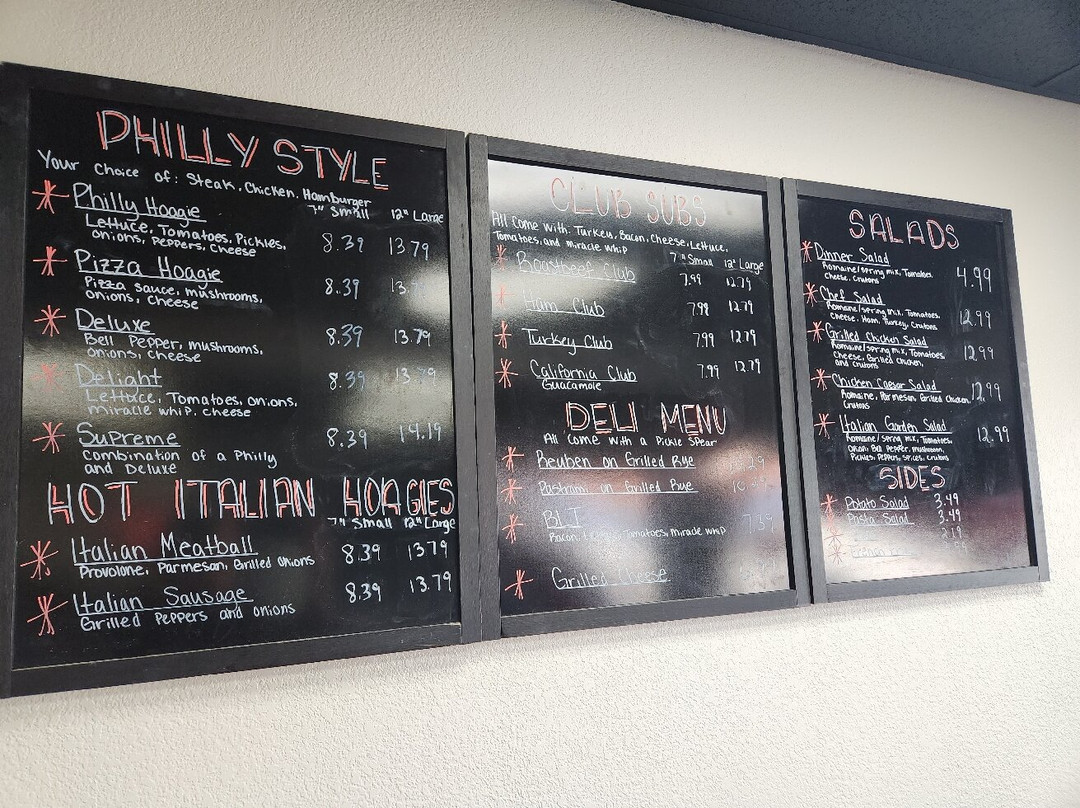 PHILLY STYLE
Your Choice of: Steak, Chicken, Hamburger
7" Small 12" Large
Philly Hoagie
Lettuce, Tomatoes, Pickles, 8.39 13.79
onions, Peppers, Cheese
Pizza Hoagie
Pizza sauce, mushrooms, 8.39
onions, Cheese
Deluxe 8.39 13.79
Bell Pepper, mushrooms,
onions, cheese
Delight 8.39 13.79
Lettuce, Tomatoes, onions,
miracle whip, cheese
Supreme 8.39 14.19
combination of a Philly
and Deluxe
HOT ITALIAN HOAGIES
7" Small 12" Large
Italian Meatball 8.39 13.79
Provolone, Parmesan, Grilled Onions
Italian Sausage 8.39 13.79
Grilled Peppers and onions
CLUB SUBS
All come with: Turkey, Bacon, Cheese, Lettuce,
Tomatoes, and miracle whip
7" Small 12" Large
Roastbeef Club 7.99 12.79
Ham Club 7.99 12.79
Turkey Club 7.99 12.79
California Club 7.99 12.79
Guacamole
DELI MENU
All Come with a Pickle Spear
Reuben on Grilled Rye
Pastrami on Grilled Rye
BLT
Bacon, Tomatoes, miracle whip
Grilled Cheese
SALADS
Dinner Salad
Romaine/spring mix, Tomatoes, 4.99
Cheese, Crutons
Chef Salad
Romaine/spring mix, Tomatoes, 12.99
Cheese, Ham, Turkey, Crutons
Grilled Chicken Salad
Romaine/spring mix, Tomatoes, 12.99
Cheese, Grilled Chicken,
and Crutons
Chicken Caesar Salad
Romaine, Parmesan, Grilled Chicken, 12.99
Crutons
Italian Garden Salad
Romaine/spring mix, Tomatoes, 12.99
Onion, Bell Pepper, mushroom,
Pickles, Peppers, spices, crutons
SIDES
Potato Salad 3.49
Pasta Salad 3.49